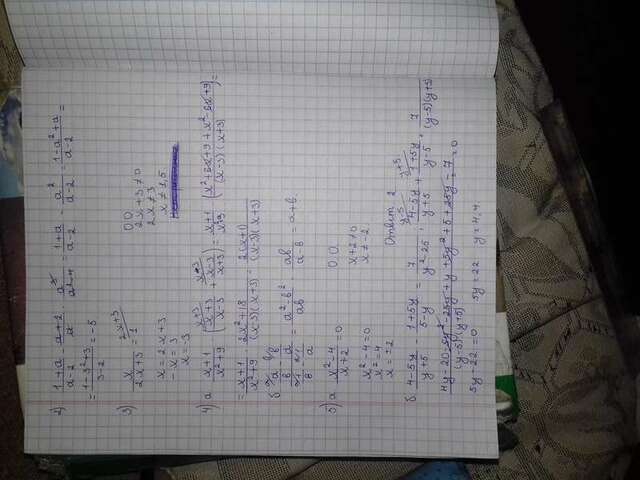 2) (1+a)/(a-2) - (a+2)/a · a³/(a²-4) = (1+a)/(a-2) - a²/(a-2) = (1-a²+a)/(a-2) =
= (1-3²+3)/(3-2) = -5
3) x/(2x+3) = 1 2x+3 / О.О.
2x+3≠0
2x≠3
x = 2x+3 x≠1,5
-x = 3
x = -3
4) а (x+1)/(x²+9) · ((x+3)/(x-3) + (x-3)/(x+3)) = (x+1)/(x²+9) · (x²+6x+9+x²-6x+9)/((x-3)(x+3)) =
= (x+1)/(x²+9) · (2x²+18)/((x-3)(x+3)) = 2(x+1)/((x-3)(x+3))
б (a/b - b/a)/(1/b - 1/a) = (a²-b²)/ab · ab/(a-b) = a+b.
5) а (x²-4)/(x+2) = 0 О.О.
x+2≠0
x²-4=0 x≠-2
x²=4
x=±2 Ответ 2
б. (4-5y)/(y+5) - (1+5y)/(5-y) = 7/(y²-25), y-5 / (4-5y)/(y+5) + y+5 / (1+5y)/(y-5) = 7/((y-5)(y+5))
(4y-20-5y²+25y+y+5y²+5+25y-7)/((y-5)(y+5)) = 0
5y-22=0 5y=22 y=4,4